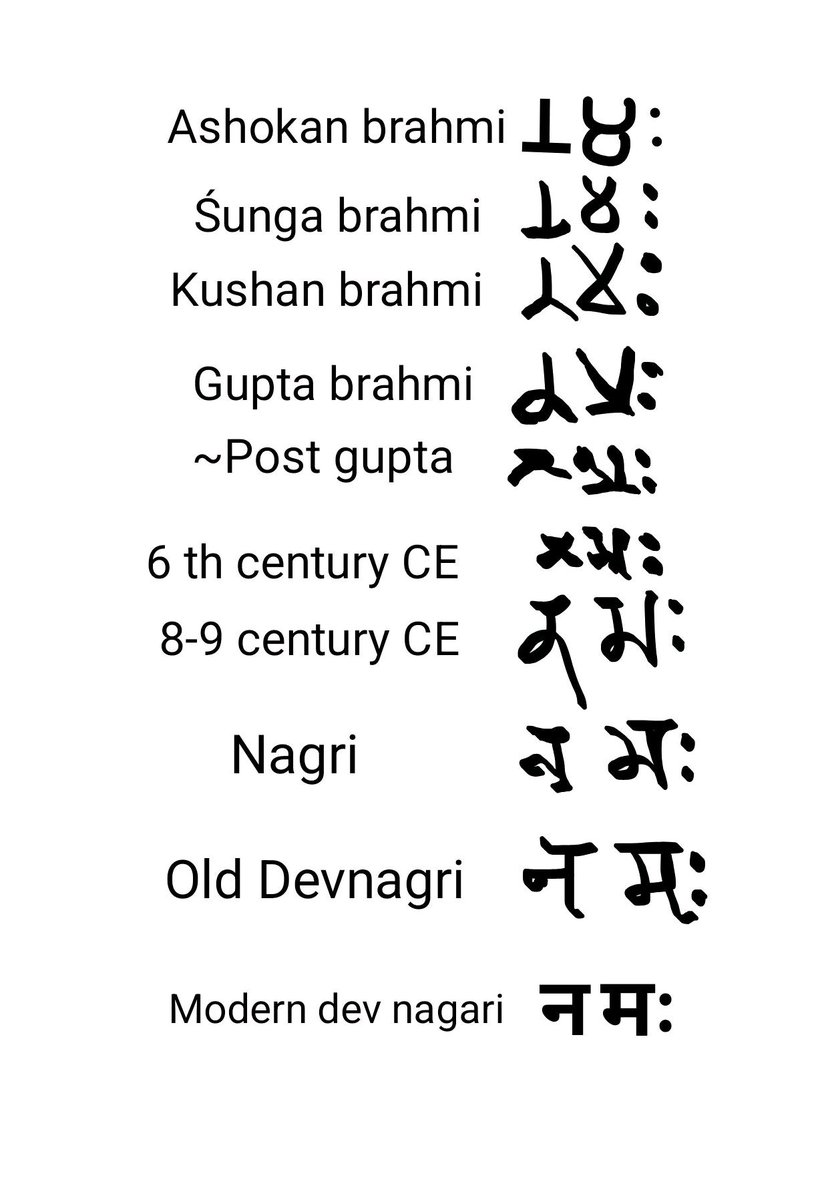 Ashokan brahmi 𑀦𑀫𑀂
Śunga brahmi 𑀦𑀫𑀂
Kushan brahmi 𑀦𑀫𑀂
Gupta brahmi 𑀦𑀫𑀂
~Post gupta
6 th century CE
8-9 century CE
Nagri नमः
Old Devnagri नमः
Modern dev nagari नमः